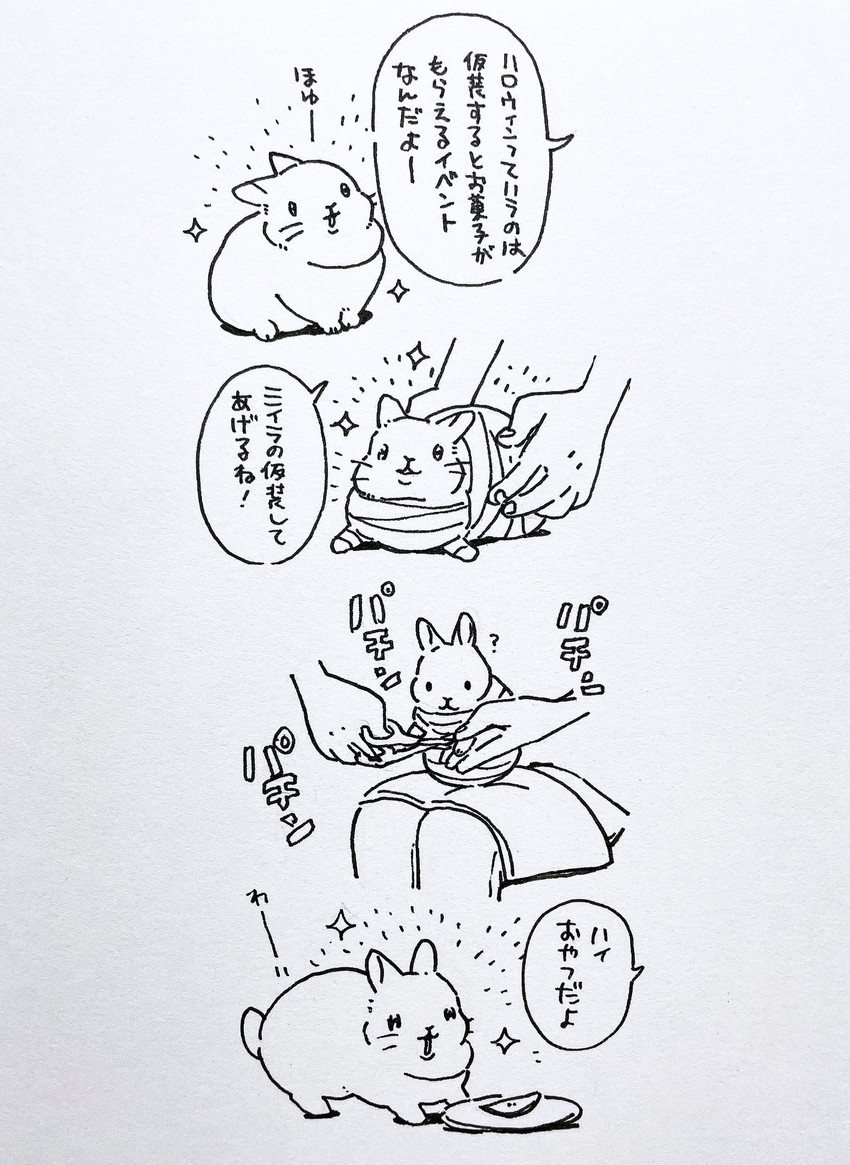 ハロウィンっていうのは
仮装するとお菓子が
もらえるイベント
なんだよー
ほゅー
ミイラの仮装して
あげるね！
パチン
?
パチン
パチン
ハイ
おやつだよ
わー"